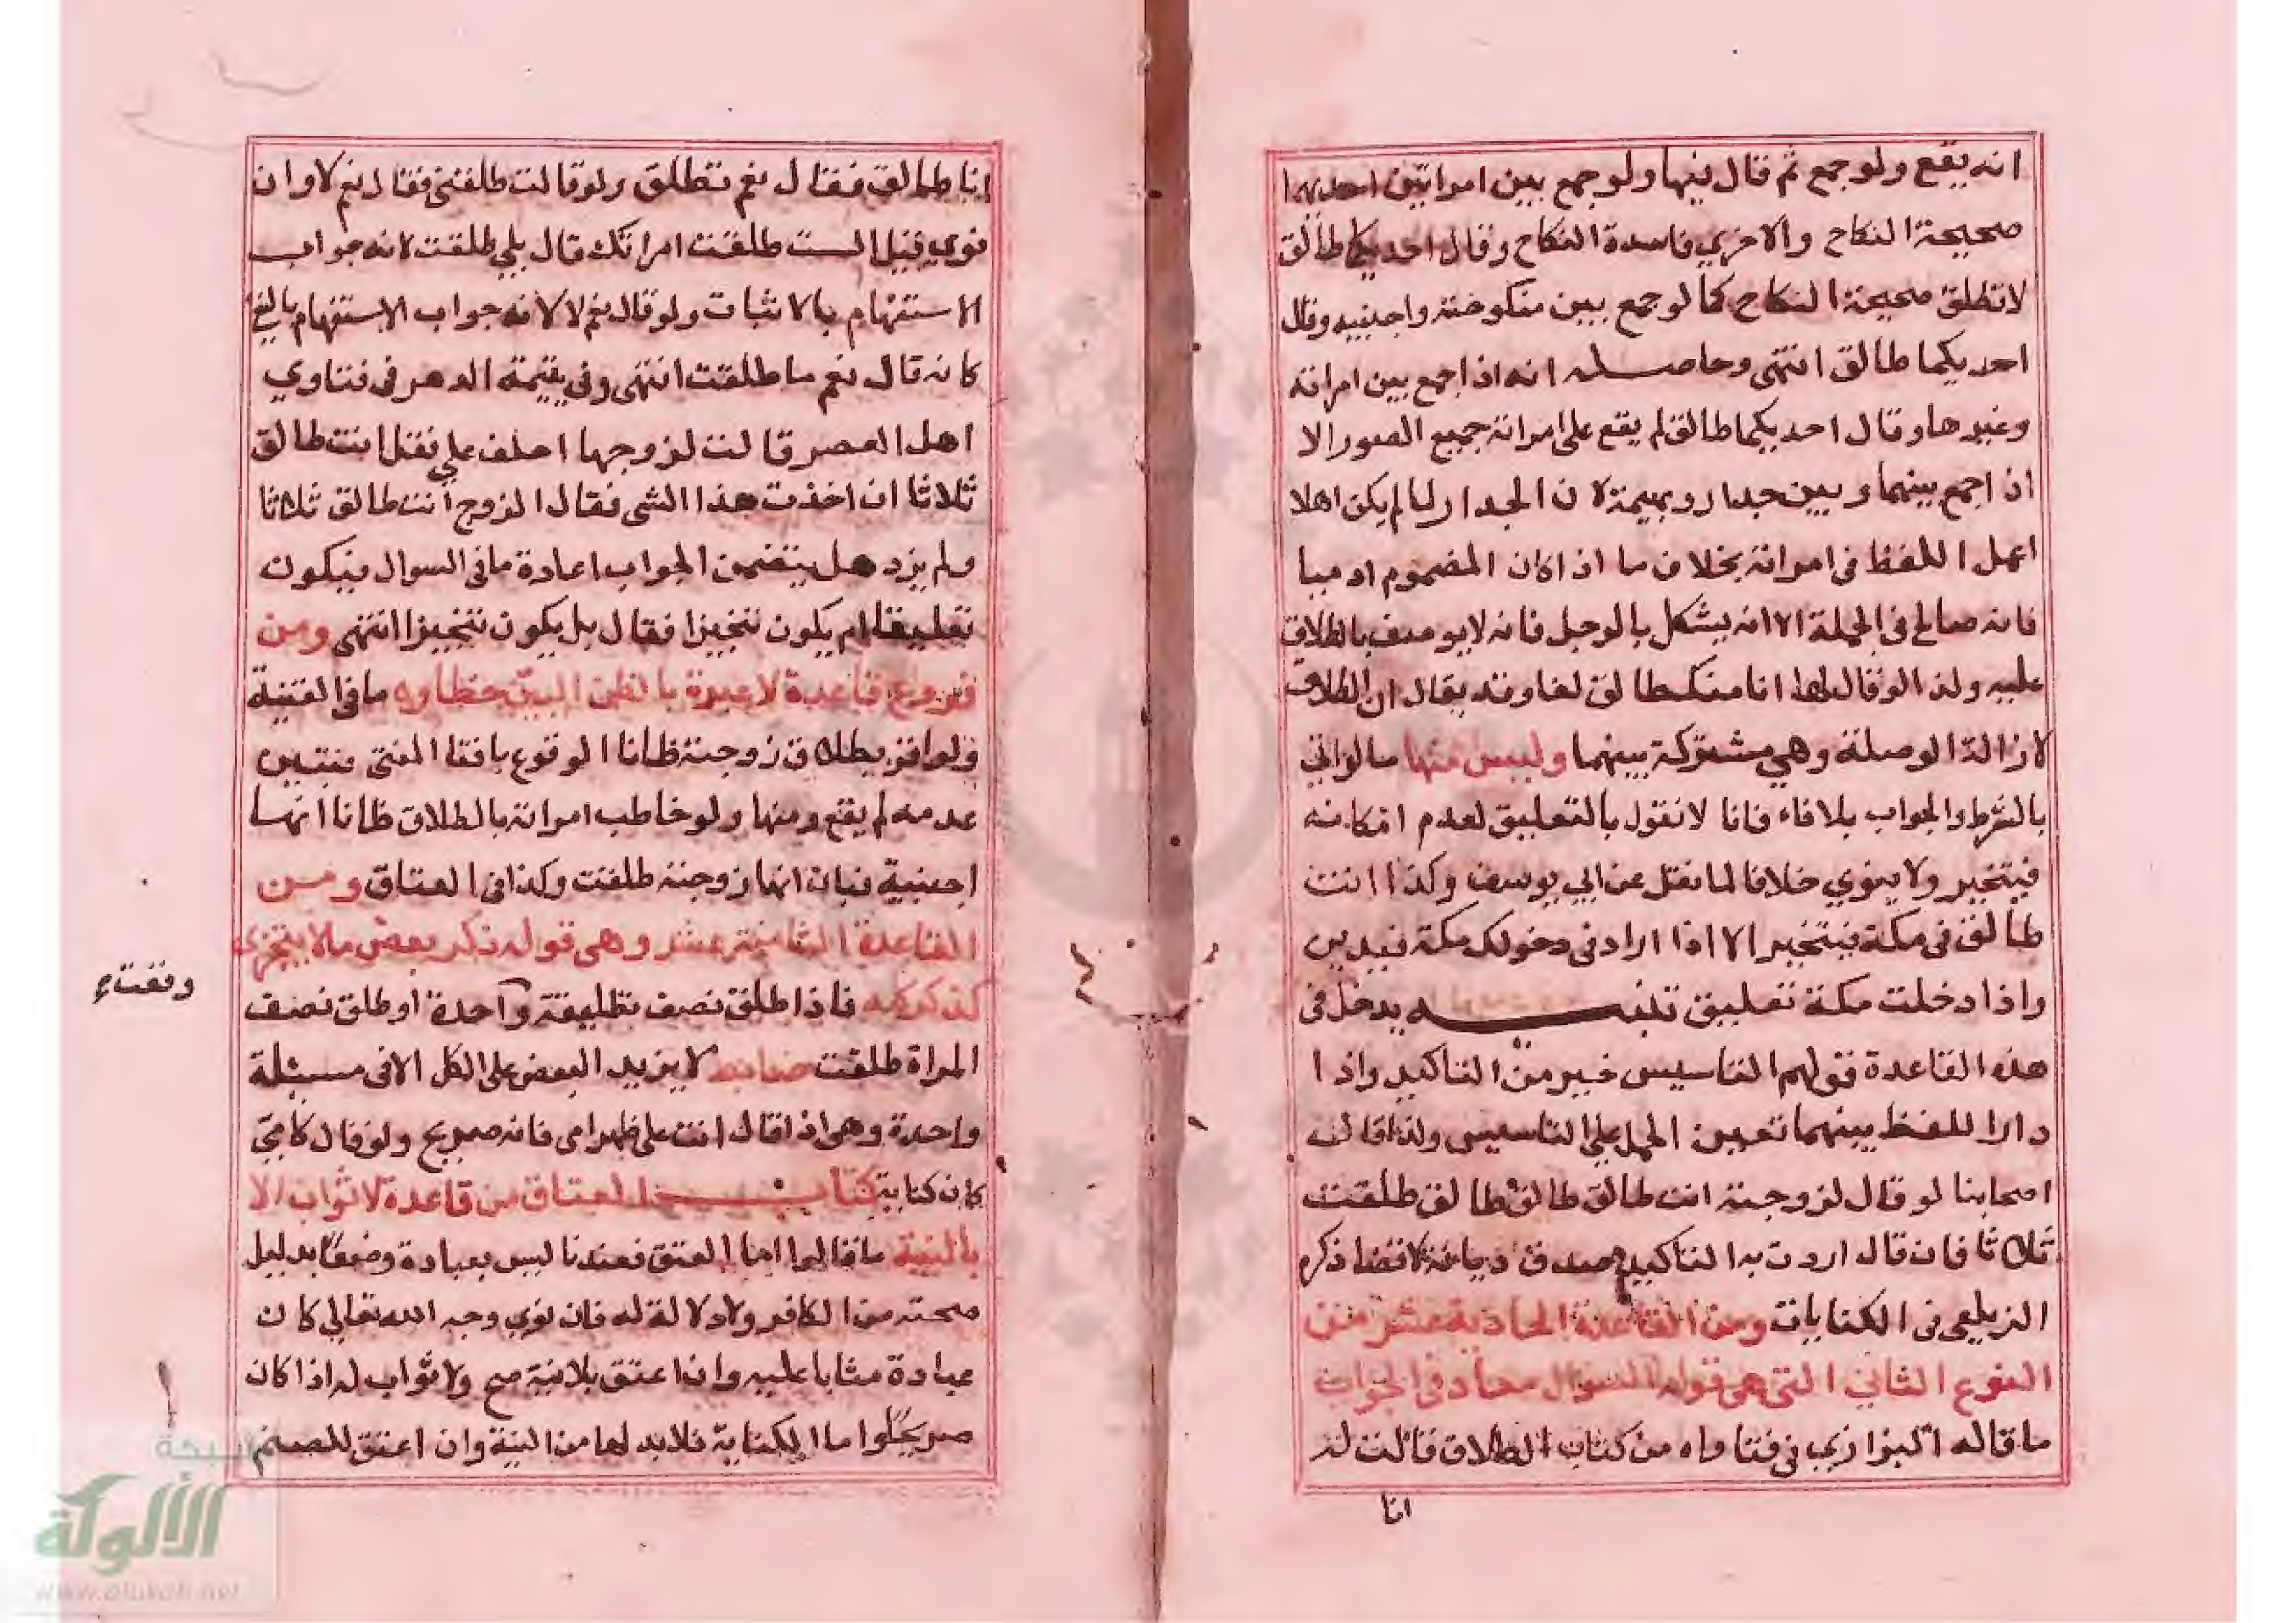 انه يقع ولو جمع ثم قال فيها ولو جمع بين امراتين احدهما
صحيحة النكاح والاخري فاسدة النكاح وقال احديكما طالق
لا تطلق صحيحة النكاح كما لو جمع بين منكوحته واجنبيه وقال
احديكما طالق انتهى وحاصله انه اذا جمع بين امراته
وغيرها وقال احديكما طالق لم يقع على امراته جميع الصور الا
اذا جمع بينهما وبين جدار وبهيمة لان الجدار لما لم يكن اهلا
اعمل اللفظ في امراته بخلاف ما اذا كان المضموم ادميا
فانه صالح في الجملة الا انه يشكل بالرجل فانه لا يوصف بالطلاق
عليه ولذا لو قال لها انا منك طالق لغا وقد يقال ان الطلاق
لازالة الوصلة وهي مشتركة بينهما وليس منها ما لو اتي
بالشرط والجواب بلا فاء فانا لا نقول بالتعليق لعدم امكانه
فيتنجيز ولا ينوي خلافا لما نقل عن ابي يوسف وكذا انت
طالق في مكة فيتنجيز الا اذا اراد في دخولك مكة فيدين
واذا دخلت مكة تعليق تنبيه يدخل في
هذه القاعدة قولهم التاسيس خير من التاكيد واذا
دار اللفظ بينهما تعين الحمل على التاسيس ولذا قالت
اصحابنا لو قال لزوجته انت طالق طالق طالق طلقت
ثلاثا فان قال اردت به التاكيد صدق ديانة لا قضا ذكره
الزيلعي في الكنايات ومن القاعدة الحادية عشر من
النوع الثاني التي هي قوله السوال معاد في الجواب
ما قاله البزازي في فتاواه من كتاب الطلاق قالت له
انا
انا طالق فقال نعم تطلق ولو قالت طلقني فقال نعم لا وان
نوي قيل الست طلقت امراتك قال بلي طلقت لانه جواب
الاستفهام بالاثبات ولو قال نعم لا لانه جواب الاستفهام بالنفي
كانه قال نعم ما طلقت انتهى وفي يتيمة الدهر في فتاوي
اهل العصر قالت لزوجها احلف علي فقل انت طالق
ثلاثا ان اخذت هذا الشي فقال الزوج انت طالق ثلاثا
ولم يزد هل يتضمن الجواب اعادة ما في السوال فيكون
تعليقا ام يكون تنجيزا فقال بل يكون تنجيزا انتهى ومن
فروع قاعدة لا عبرة بالظن البين خطاوه ما في القنية
ولو اقر بطلاق زوجته ظانا الوقوع بافتا المفتي فتبين
عدمه لم يقع ومنها ولو خاطب امراته بالطلاق ظانا انها
اجنبية فبان انها زوجته طلقت وكذا في العتاق ومن
القاعدة الثامنة عشر وهي قوله ذكر بعض ما لا يتجزي
كذكر كله فاذا طلق نصف تطليقة واحدة او طلق نصف
المراة طلقت ضابط لا يزيد البعض على الكل الا في مسئلة
واحدة وهي اذا قال انت على ظهر امي فانه صريح ولو قال كامي
كان كناية كتاب العتاق من قاعدة لا ثواب الا
بالنية ما قالوا اما العتق فعندنا ليس بعبادة وضعا بدليل
صحته من الكافر ولا دلالة له فان نوي وجه الله تعالي كان
عبادة مثابا عليه وان اعتق بلا نية صح ولا ثواب له اذا كان
صريحا واما الكناية فلا بد لها من النية وان اعتق للصنم
وقفت
شبكة
الألوكة
www.alukah.net